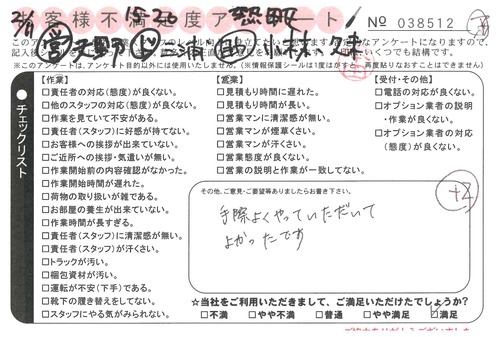 お客様不満足度アンケート
No 038512
※このアンケートは、アンケート目的以外には使用いたしません。(※情報保護シールは1度はがすと、再度貼りなおすことはできません)
チェックリスト
【作業】
□責任者の対応(態度)が良くない。
□他のスタッフの対応(態度)が良くない。
□作業を見ていて不安がある。
□責任者(スタッフ)に好感が持てない。
□お客様への挨拶が出来ていない。
□ご近所への挨拶・気遣いが無い。
□作業開始前の内容確認がなかった。
□作業開始時間が遅れた。
□荷物の取り扱いが雑である。
□お部屋の養生が出来ていない。
□作業時間が長すぎる。
□責任者(スタッフ)に清潔感が無い。
□責任者(スタッフ)が汗くさい。
□トラックが汚い。
□梱包資材が汚い。
□運転が不安(下手)である。
□靴下の履き替えをしてない。
□スタッフにやる気がみられない。
【営業】
□見積もり時間に遅れた。
□見積もり時間が長い。
□営業マンに清潔感が無い。
□営業マンが煙草くさい。
□営業マンが汗くさい。
□営業態度が良くない。
□営業の説明と作業が一致してない。
【受付・その他】
□電話の対応が良くない。
□オプション業者の説明
・作業が良くない。
□オプション業者の対応
(態度)が良くない。
その他、ご意見・ご要望等ありましたらお書き下さい。
手際よくやっていただいて
よかったです
+2
☆当社をご利用いただきまして、ご満足いただけたでしょうか?
□不満 □やや不満 □普通 □やや満足 ☑満足